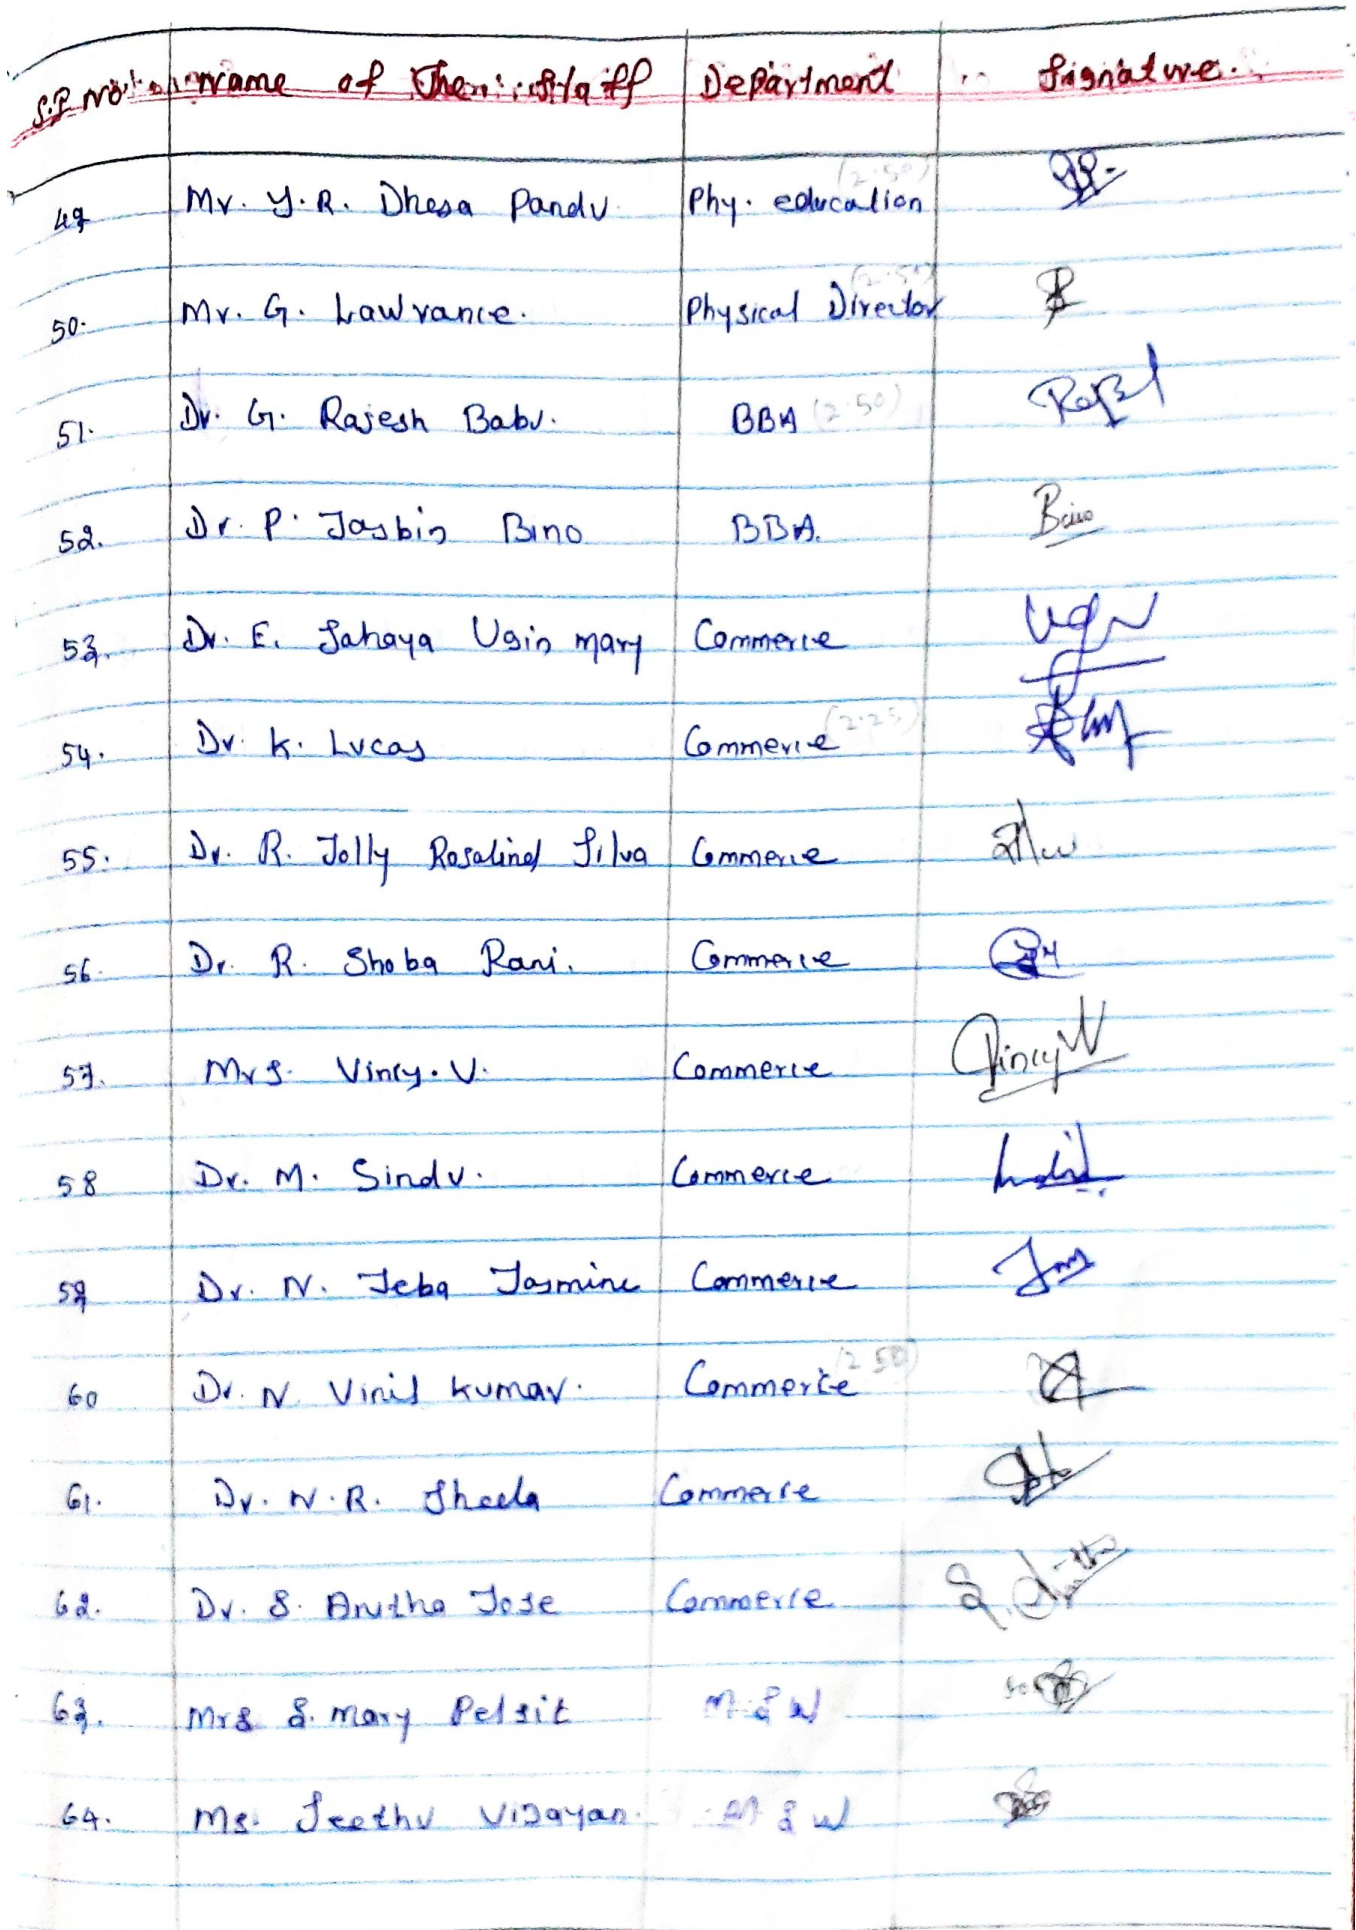 S.I No Name of The Staff Department Signature.
49 Mr. Y.R. Dhesa Pandu. Phy. education (2.50)
50. Mr. G. Lawrance. Physical Director (2.50)
51. Dr. G. Rajesh Babu. BBA (2.50)
52. Dr. P. Jasbin Bino BBA. Bino
53. Dr. E. Sahaya Ugin mary Commerce
54. Dr. K. Lucas Commerce (2.25)
55. Dr. R. Jolly Rosalind Silva Commerce
56. Dr. R. Shoba Rani. Commerce
57. Mrs. Vincy. V. Commerce Vincy V
58 Dr. M. Sindu. Commerce
59 Dr. N. Jeba Jasmine Commerce
60 Dr. N. Vinil Kumar. Commerce (2.50)
61. Dr. N.R. Sheela Commerce
62. Dr. S. Anitha Jose Commerce
63. Mrs S. Mary Pelsit M.S.W
64. Ms. Jeethu Vijayan. M S W